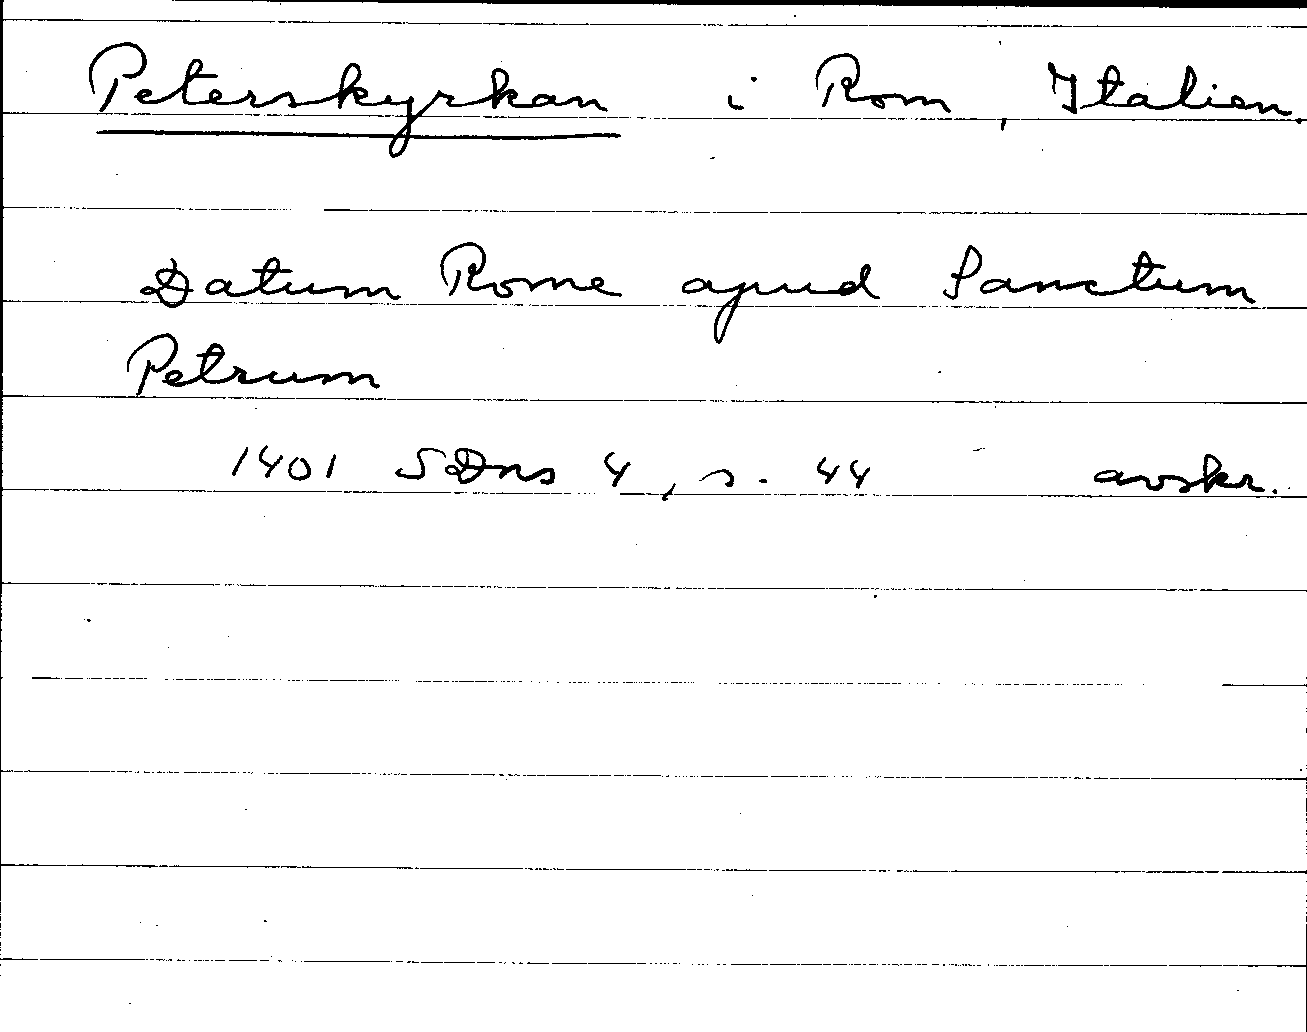 Peterskyrkan i Rom, Italien.
Datum Rome apud Sanctum
Petrum
1401 SDns 4, s. 44 avskr.